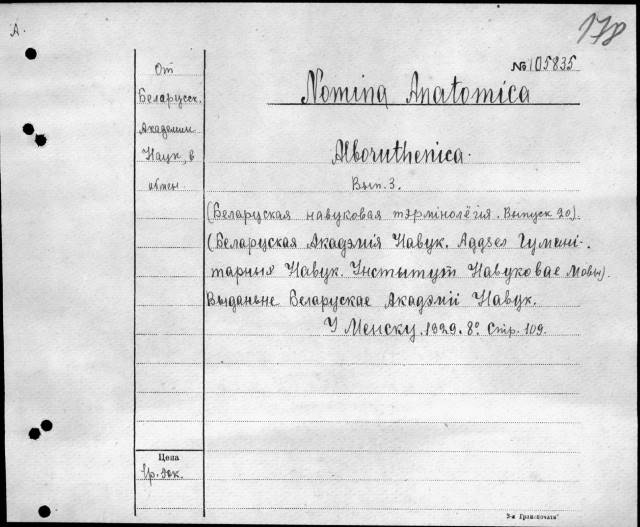 А.
178
№ 105835
От
Беларусск.
Академии
Наук, в
обмен
Nomina Anatomica
Alboruthenica.
Вып. 3.
(Беларуская навуковая тэрмінолёгія. Выпуск 20).
(Беларуская Акадэмія Навук. Аддзел Гумані-
тарных Навук. Інстытут Навуковае Мовы).
Выданьне Беларускае Акадэміі Навук.
У Менску. 1929. 8º. Стр. 109.
Цена
1р. к.